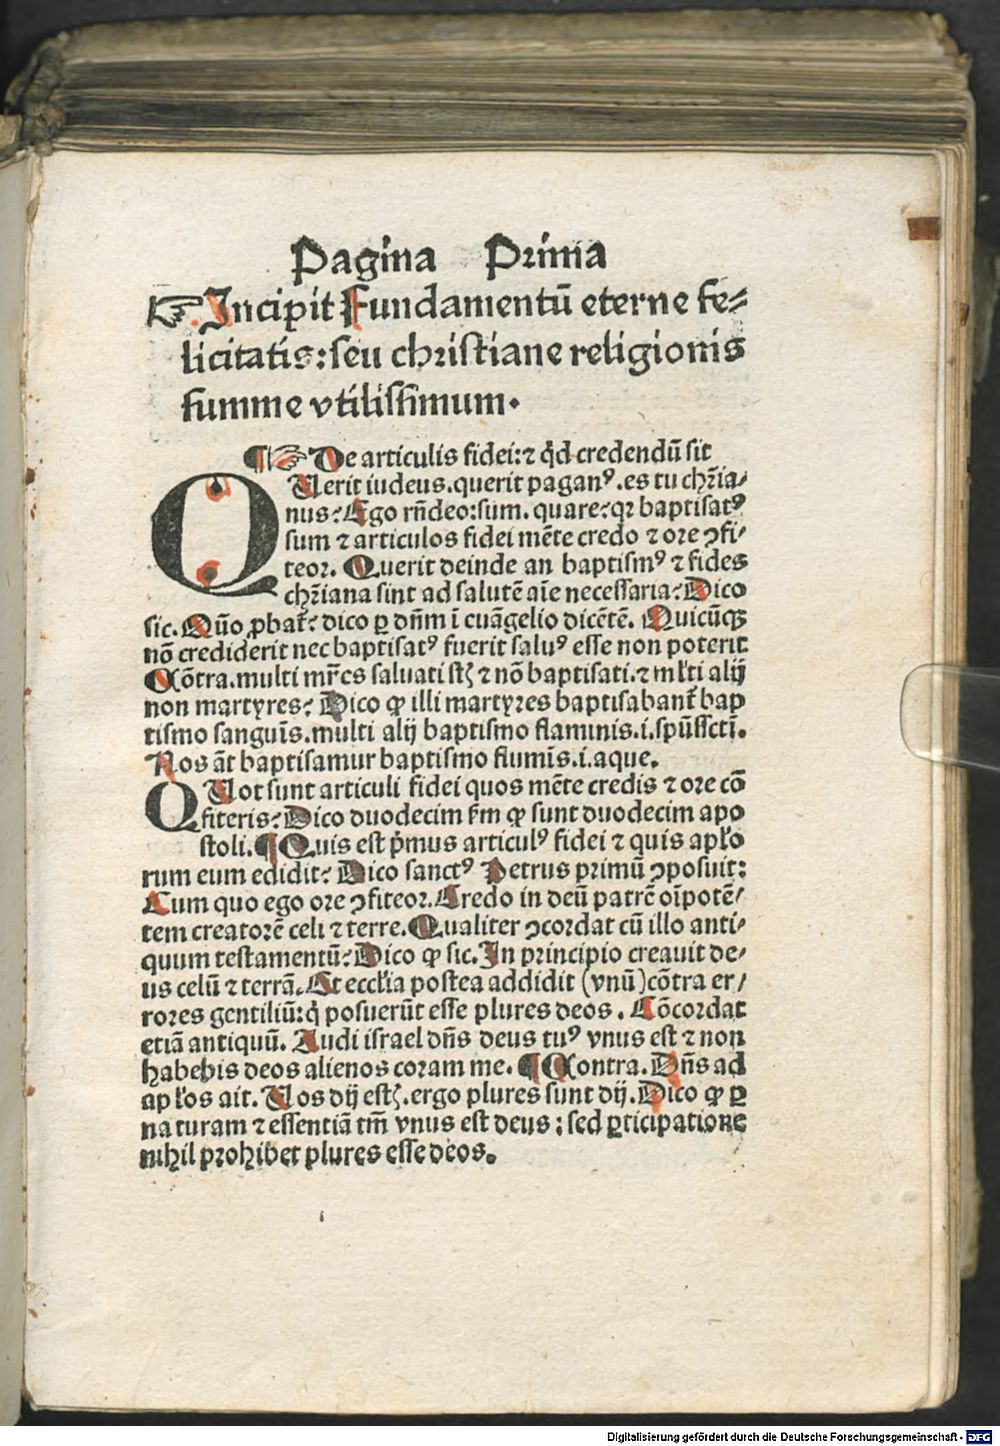 Pagina Prima
☞Incipit Fundamentū eterne fe⸗
licitatis: seu christiane religionis
summe vtilissimum.
¶☞De articulis fidei: ⁊ qd credendū sit
QUerit iudeus. querit paganꝰ. es tu chr̄ia⸗
nus? Ego rn̄deo: sum. quare? qꝛ baptisatꝰ
sum ⁊ articulos fidei mēte credo ⁊ ore ↄfi⸗
teor. Querit deinde an baptismꝰ ⁊ fides
chr̄iana sint ad salutē aīe necessaria? Dico
sic. Qūo ꝓbat᷑? dico ꝑ dn̄m ī euāgelio dicētē. Quicūqꝫ
nō crediderit nec baptisatꝰ fuerit saluꝰ esse non poterit
Cōtra. multi mr̄es saluati st̄ ⁊ nō baptisati. ⁊ ml̓ti alij
non martyres? Dico ꝙ illi martyres baptisabant᷑ bap
tismo sanguīs. multi alij baptismo flaminis .i. spūssctī.
Nos āt baptisamur baptismo flumīs .i. aque.
QUot sunt articuli fidei quos mēte credis ⁊ ore cō
fiteris? Dico duodecim s̄m ꝙ sunt duodecim apo
stoli. ¶Quis est pꝰmus articulꝰ fidei ⁊ quis apl̓o
rum eum edidit? Dico sanctꝰ Petrus primū ↄposuit:
Cum quo ego ore ↄfiteor. Credo in deū patrē oīpotē⸗
tem creatorē celi ⁊ terre. Qualiter ↄcordat cū illo anti⸗
quum testamentū? Dico ꝙ sic. In principio creauit de⸗
us celū ⁊ terrā. At eccl̓ia postea addidit (vnū) cōtra er⸗
rores gentiliū: q̄ posuerūt esse plures deos. Cōcordat
etiā antiquū. Audi israel dn̄s deus tuꝰ vnus est ⁊ non
habebis deos alienos coram me. ¶Contra. Dn̄s ad
apl̓os ait. Vos dij estꝭ. ergo plures sunt dij. Dico ꝙ ꝑ
naturam ⁊ essentiā tm̄ vnus est deus: sed ꝑticipatione
nihil prohibet plures esse deos.
Digitalisierung gefördert durch die Deutsche Forschungsgemeinschaft - DFG